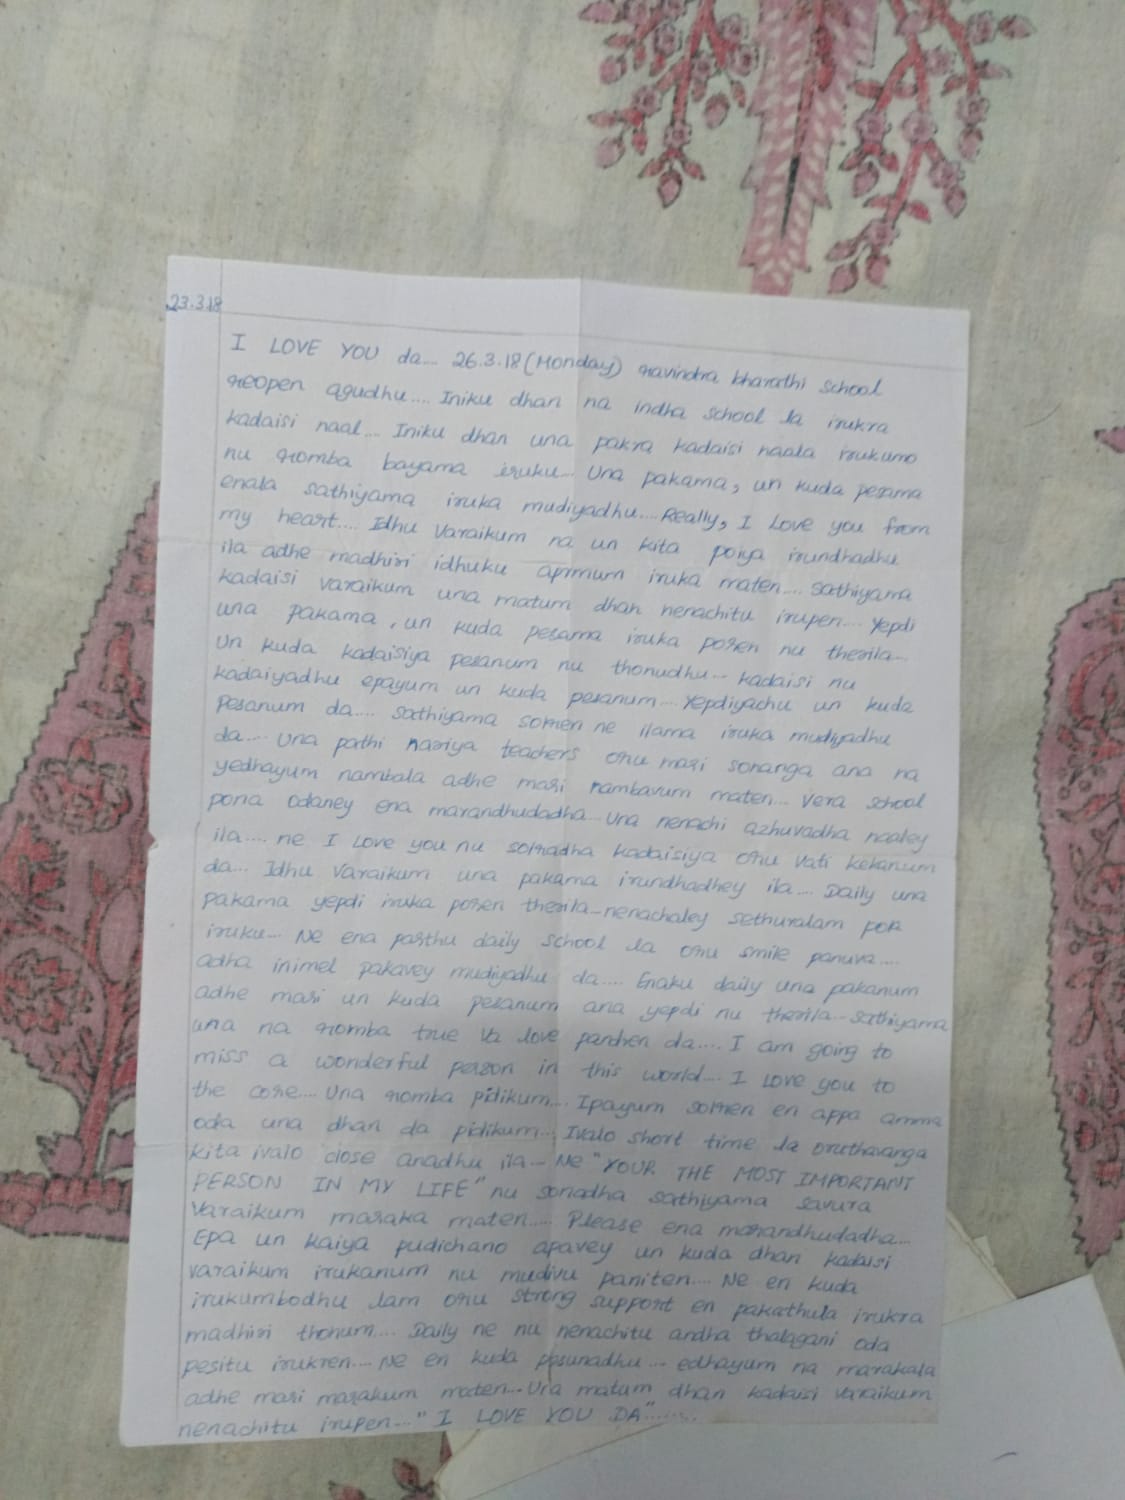 23.3.18
I LOVE YOU da.... 26.3.18 (Monday) ravindra bharathi school
reopen agudhu.... Iniku dhan na indha school la irukra
kadaisi naal... Iniku dhan una pakra kadaisi naala irukumo
nu romba bayama iruku... Una pakama, un kuda pesama
enala sathiyama iruka mudiyadhu.... Really, I Love you from
my heart.... Idhu varaikum na un kita poiya irundhadhu
ila adhe madhiri idhuku aprmum iruka maten.... sathiyama
kadaisi varaikum una matum dhan nenachitu irupen.... Yepdi
una pakama, un kuda pesama iruka poren nu therila...
Un kuda kadaisiya pesanum nu thonudhu... kadaisi nu
kadaiyadhu epayum un kuda pesanum.... Yepdiyachu un kuda
pesanum da.... Sathiyama solren ne ilama iruka mudiyadhu
da.... Una pathi nariya teachers oru mari sonanga ana na
yedhayum nambala adhe mari nambavum maten... Vera school
pona odaney ena marandhudadha... Una nenachi azhuvadha naaley
ila.... ne I Love you nu solradha kadaisiya oru vati kekanum
da... Idhu varaikum una pakama irundhadhey ila.... Daily una
pakama yepdi iruka poren therila - nenachaley sethuralam pola
iruku... Ne ena parthu daily school la oru smile panuva....
adha inimel pakavey mudiyadhu da.... Enaku daily una pakanum
adhe mari un kuda pesanum ana yepdi nu therila... sathiyama
una na romba true va love panren da.... I am going to
miss a wonderful person in this world.... I Love you to
the core.... Una romba pidikum... Ipayum solren en appa amma
oda una dhan da pidikum... Ivalo short time la oruthavanga
kita ivalo close anadhu ila... Ne "YOUR THE MOST IMPORTANT
PERSON IN MY LIFE" nu sonadha sathiyama savura
varaikum maraka maten.... Please ena marandhudadha...
Epa un kaiya pudichano apavey un kuda dhan kadaisi
varaikum irukanum nu mudivu paniten.... Ne en kuda
irukumbodhu lam oru strong support en pakathula irukra
madhiri thonum.... Daily ne nu nenachitu andha thalagani oda
pesitu irukren.... Ne en kuda pesunadhu... edhayum na marakala
adhe mari marakum maten... Una matum dhan kadaisi varaikum
nenachitu irupen..." I LOVE YOU DA".......